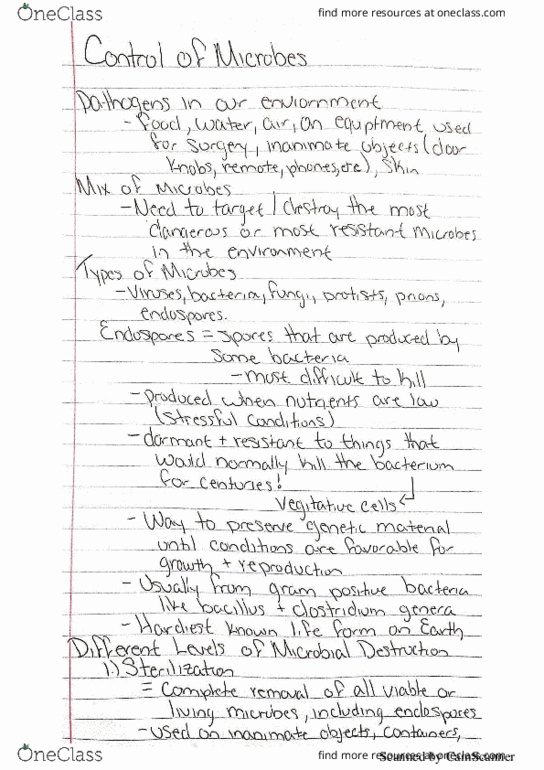 OneClass
find more resources at oneclass.com
Control of Microbes
Pathogens in our enviornment
- food, water, air, on equptment used
for surgery, inanimate objects (door
knobs, remote, phones, etc), skin
Mix of Microbes
- Need to target / destroy the most
dangerous or most resistant microbes
in the environment
Types of Microbes
- Viruses, bacteria, fungi, protists, prions,
endospores.
Endospores = spores that are produced by
some bacteria
- most difficult to kill
- produced when nutrients are low
(stressful conditions)
- dormant + resistant to things that
would normally kill the bacterium
for centuries!
Vegitative cells
- Way to preserve genetic material
until conditions are favorable for
growth + reproduction
- Usually from gram positive bacteria
like bacillus + clostridium genera
- Hardiest known life form on Earth
Different Levels of Microbial Destruction
1.) Sterilization
= Complete removal of all viable or
living microbes, including endospores
- used on inanimate objects, containers,
OneClass
find more resources at oneclass.com
Scanned by CamScanner